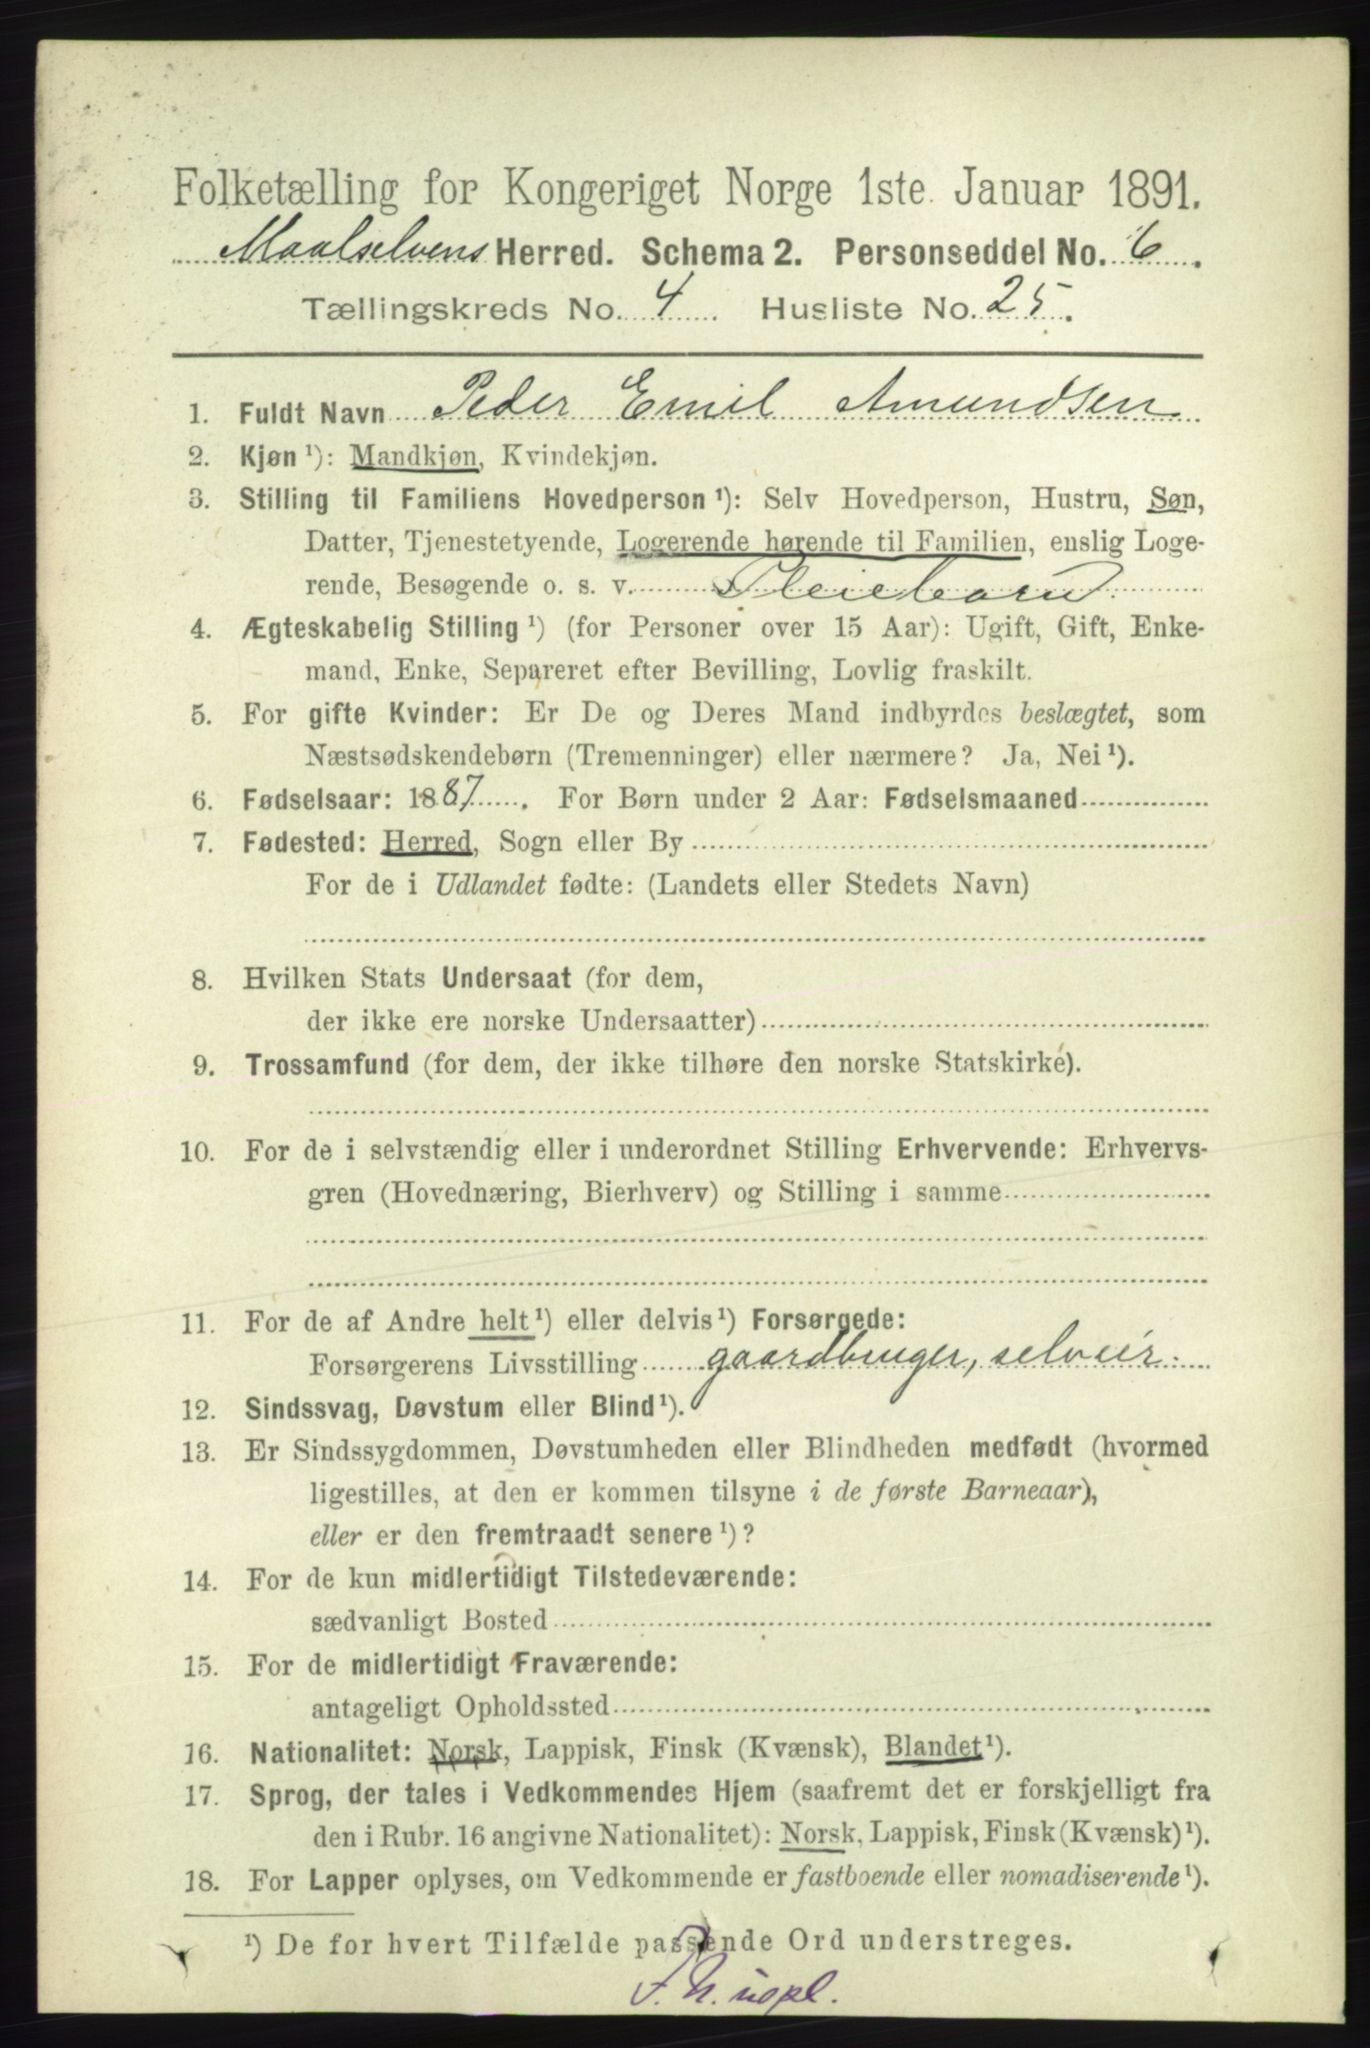 Folketælling for Kongeriget Norge 1ste Januar 1891.
Maalselvens Herred. Schema 2. Personseddel No. 6.
Tællingskreds No. 4 Husliste No. 25.
1. Fuldt Navn Peder Emil Amundsen
2. Kjøn ¹): Mandkjøn, Kvindekjøn.
3. Stilling til Familiens Hovedperson ¹): Selv Hovedperson, Hustru, Søn,
Datter, Tjenestetyende, Logerende hørende til Familien, enslig Loge-
rende, Besøgende o. s. v. Pleiebarn
4. Ægteskabelig Stilling ¹) (for Personer over 15 Aar): Ugift, Gift, Enke-
mand, Enke, Separeret efter Bevilling, Lovlig fraskilt.
5. For gifte Kvinder: Er De og Deres Mand indbyrdes beslægtet, som
Næstsødskendebørn (Tremenninger) eller nærmere? Ja, Nei ¹).
6. Fødselsaar: 1887. For Børn under 2 Aar: Fødselsmaaned
7. Fødested: Herred, Sogn eller By
For de i Udlandet fødte: (Landets eller Stedets Navn)
8. Hvilken Stats Undersaat (for dem,
der ikke ere norske Undersaatter)
9. Trossamfund (for dem, der ikke tilhøre den norske Statskirke).
10. For de i selvstændig eller i underordnet Stilling Erhvervende: Erhvervs-
gren (Hovednæring, Bierhverv) og Stilling i samme
11. For de af Andre helt ¹) eller delvis ¹) Forsørgede:
Forsørgerens Livsstilling gaardbruger, selveier.
12. Sindssvag, Døvstum eller Blind ¹).
13. Er Sindssygdommen, Døvstumheden eller Blindheden medfødt (hvormed
ligestilles, at den er kommen tilsyne i de første Barneaar),
eller er den fremtraadt senere ¹)?
14. For de kun midlertidigt Tilstedeværende:
sædvanligt Bosted
15. For de midlertidigt Fraværende:
antageligt Opholdssted
16. Nationalitet: Norsk, Lappisk, Finsk (Kvænsk), Blandet ¹).
17. Sprog, der tales i Vedkommendes Hjem (saafremt det er forskjelligt fra
den i Rubr. 16 angivne Nationalitet): Norsk, Lappisk, Finsk (Kvænsk) ¹).
18. For Lapper oplyses, om Vedkommende er fastboende eller nomadiserende ¹).
¹) De for hvert Tilfælde passende Ord understreges.